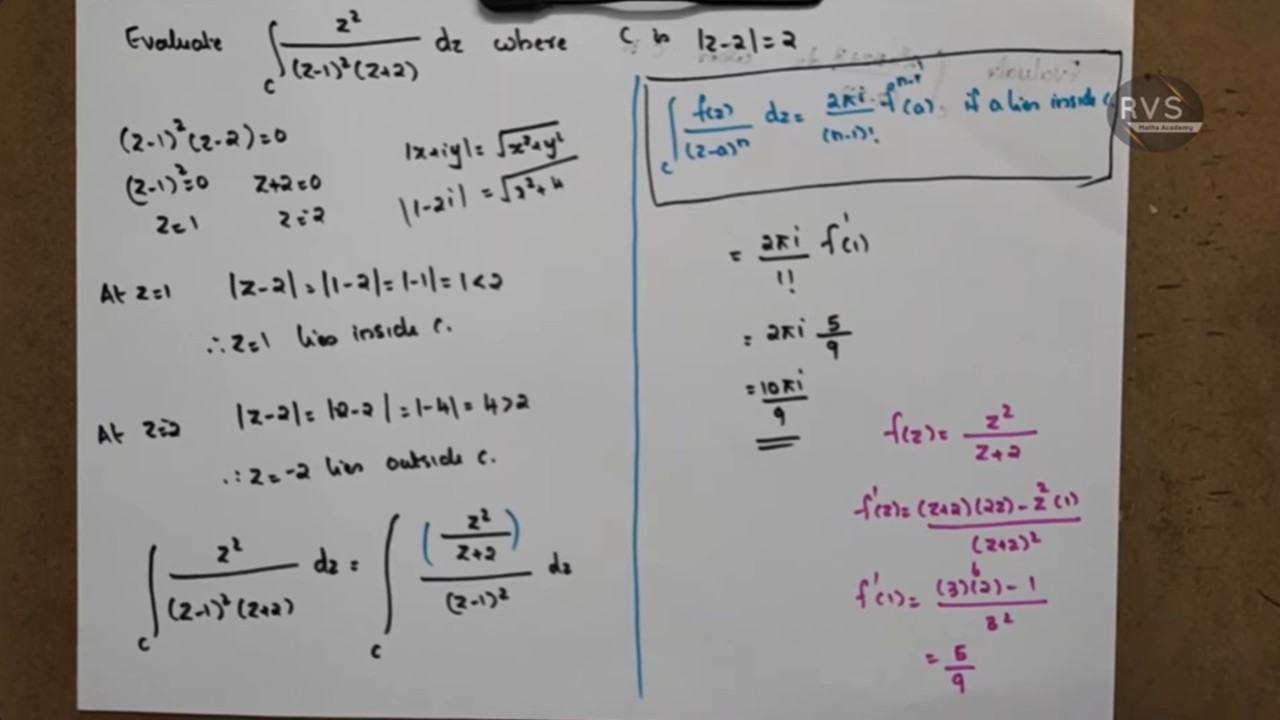 Evaluate ∫_C z²/((z-1)²(z+2)) dz where C is |z-2|=2
(z-1)²(z-2)=0
(z-1)²=0 z+2=0
z=1 z=-2
|x+iy|=√(x²+y²)
|1-2i| =
At z=1 |z-2|=|1-2|=|-1|=1<2
∴z=1 lies inside C.
At z=-2 |z-2|= -2|=|-4|=4>2
∴z=-2 lies outside C.
∫_C z²/((z-1)²(z+2)) dz = ∫_C (z²/(z+2))/(z-1)² dz
∫_C f(z)/(z-a)ⁿ dz = 2πi/(n-1)! fⁿ⁻¹(a), if a lies inside C
RVS
Maths Academy
= 2πi/1! f'(1)
= 2πi 5/9
= 10πi/9
f(z)= z²/(z+2)
f'(z)= ((z+2)(2z)-z²(1))/(z+2)²
6
f'(1)= ((3)(2)-1)/3²
= 5/9